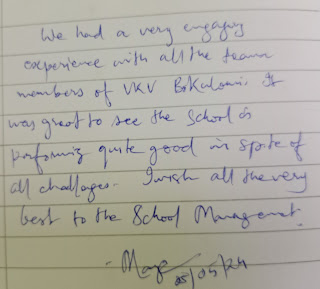 We had a very engaging
experience with all the team
members of VKV Bokuloni. It
was great to see the School is
performing quite good in spite of
all challages. I wish all the very
best to the School Management
05/04/24